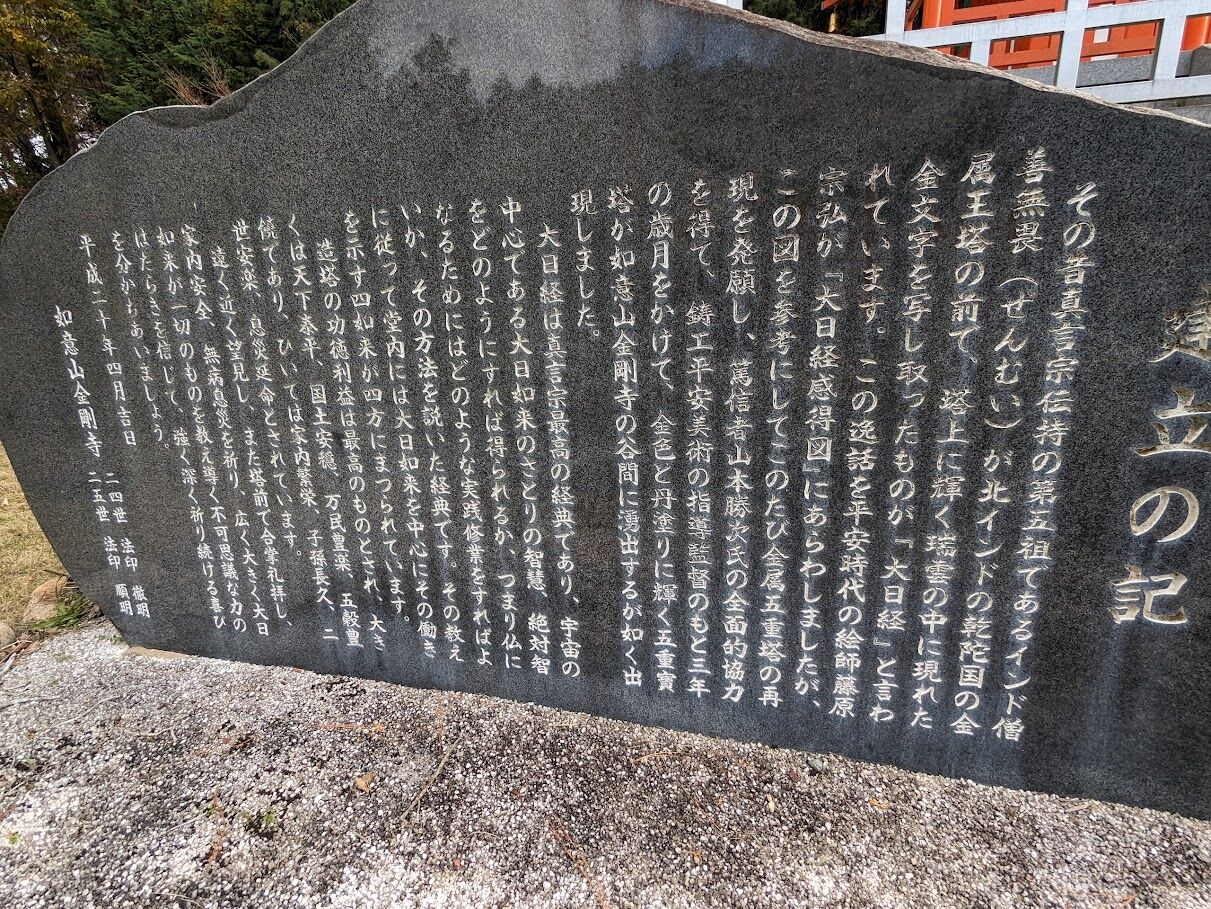 建立の記
その昔真言宗伝持の第五祖であるインド僧
善無畏（ぜんむい）が北インドの乾陀国の金
属王塔の前で、塔上に輝く瑞雲の中に現れた
金文字を写し取ったものが「大日経」と言わ
れています。この逸話を平安時代の絵師藤原
宗弘が『大日経感得図』にあらわしましたが、
この図を参考にしてこのたび金属五重塔の再
現を発願し、篤信者山本勝次氏の全面的協力
を得て、鋳工平安美術の指導監督のもと三年
の歳月をかけて、金色と丹塗りに輝く五重寶
塔が如意山金剛寺の谷間に湧出するが如く出
現しました。
大日経は真言宗最高の経典であり、宇宙の
中心である大日如来のさとりの智慧、絶対智
をどのようにすれば得られるか、つまり仏に
なるためにはどのような実践修業をすればよ
いか、その方法を説いた経典です。その教え
に従って堂内には大日如来を中心にその働き
を示す四如来が四方にまつられています。
造塔の功徳利益は最高のものとされ、大き
くは天下泰平、国土安穏、万民豊楽、五穀豊
饒であり、ひいては家内繁栄、子孫長久、二
世安楽、息災延命とされています。
遠く近く望見し、また塔前で合掌礼拝し、
家内安全、無病息災を祈り、広く大きく大日
如来が一切のものを教え導く不可思議な力の
はたらきを信じて、強く深く祈り続ける喜び
を分かちあいましょう。
平成二十年四月吉日 二四世 法印 徹明
如意山金剛寺 二五世 法印 順明